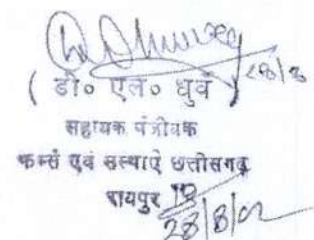 28/8
( डी० एल० धुर्व )
सहायक पंजीयक
फर्म्स एवं संस्थाएं छत्तीसगढ़
रायपुर
28/8/02